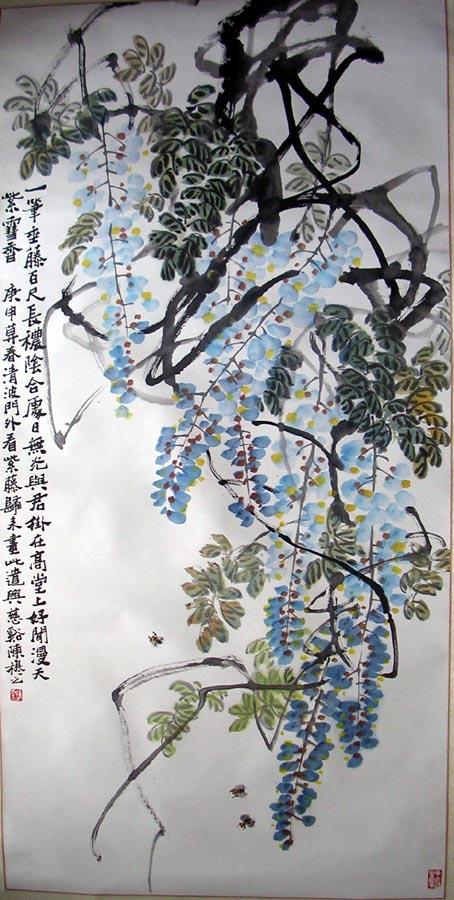 一筆垂藤百尺長穠陰合處日無光與君掛在高堂上好聞漫天
紫雪香 庚申莫春清波門外看紫藤歸来畫此遣興慈谿陳之